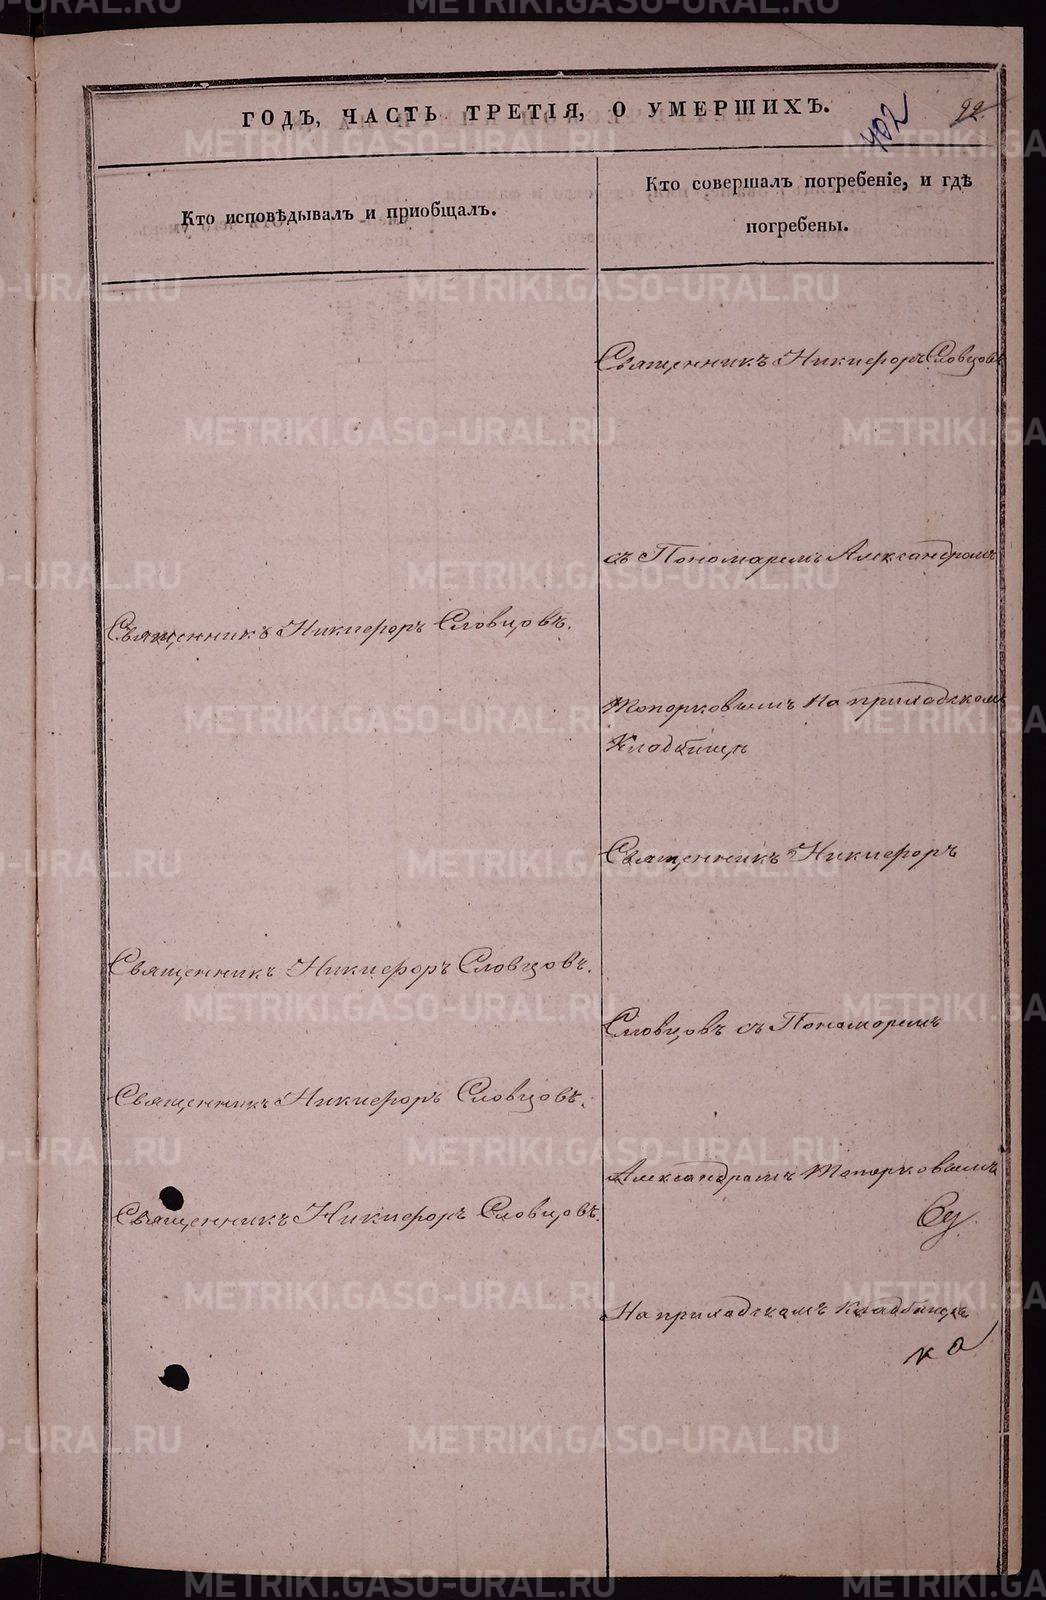 ГОДЪ, ЧАСТЬ ТРЕТІЯ, О УМЕРШИХЪ.
402
92
Кто исповѣдывалъ и пріобщалъ.
Кто совершалъ погребеніе, и гдѣ
погребены.
Священникъ Никифоръ Словцовъ
съ Пономаремъ Александромъ
Священникъ Никифоръ Словцовъ.
Топорковымъ на приходскомъ
Кладбищѣ
Священникъ Никифоръ
Священникъ Никифоръ Словцовъ.
Словцовъ съ Пономоремъ
Священникъ Никифоръ Словцовъ.
Александрамъ Топорковымъ
Священникъ Никифоръ Словцовъ.
На приходскамъ кладбищѣ
METRIKI.GASO-URAL.RU